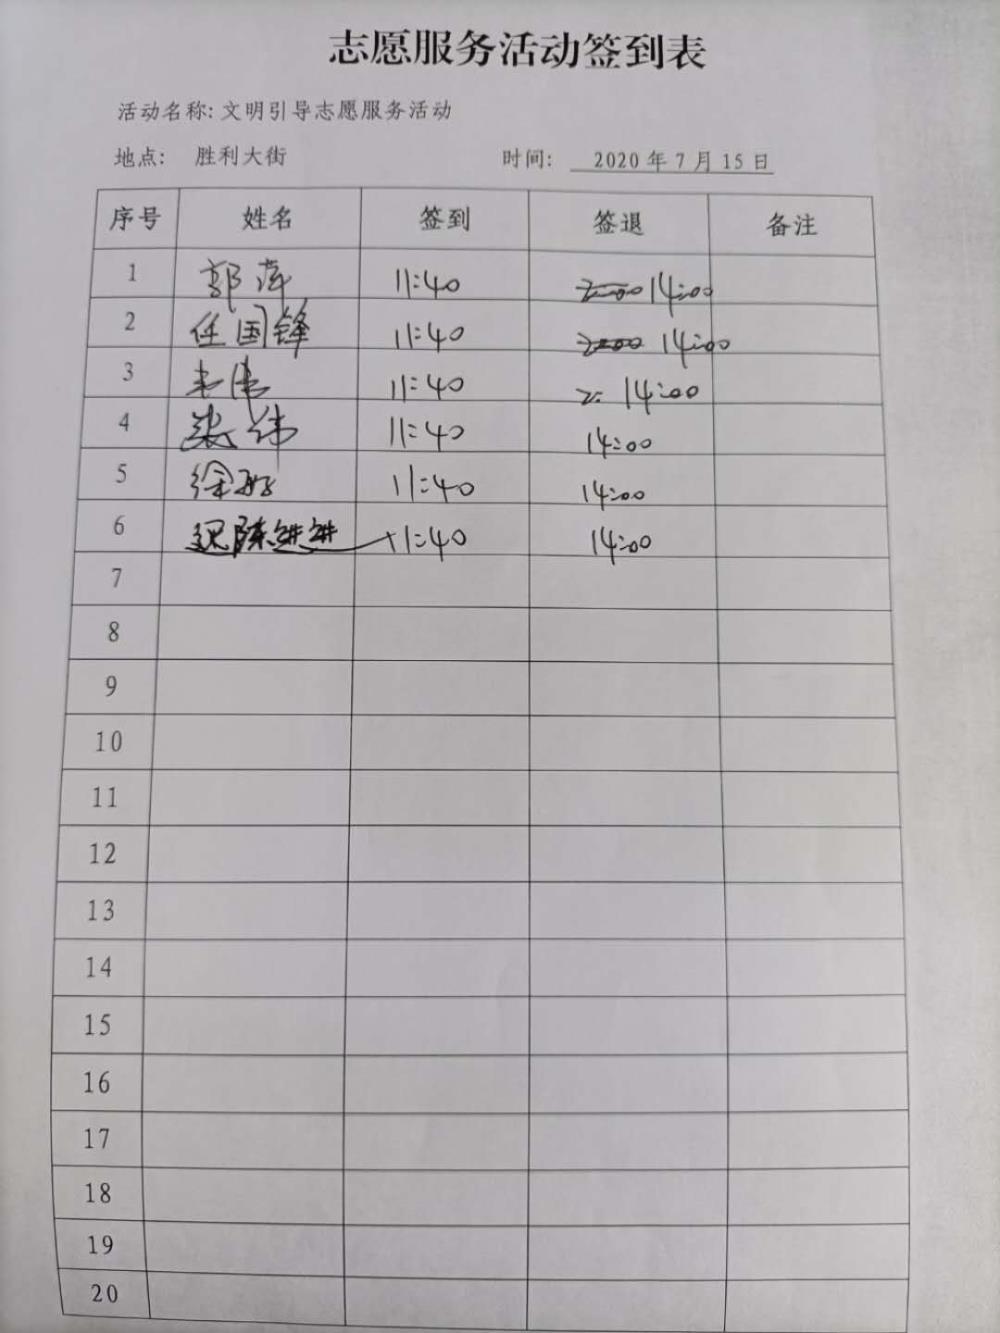 志愿服务活动签到表
活动名称: 文明引导志愿服务活动
地点: 胜利大街 时间: 2020年7月15日
序号 姓名 签到 签退 备注
1 郭萍 11:40 14:00
2 任国锋 11:40 14:00
3 11:40 14:00
4 张伟 11:40 14:00
5 徐 11:40 14:00
6 陈进进 11:40 14:00
7
8
9
10
11
12
13
14
15
16
17
18
19
20